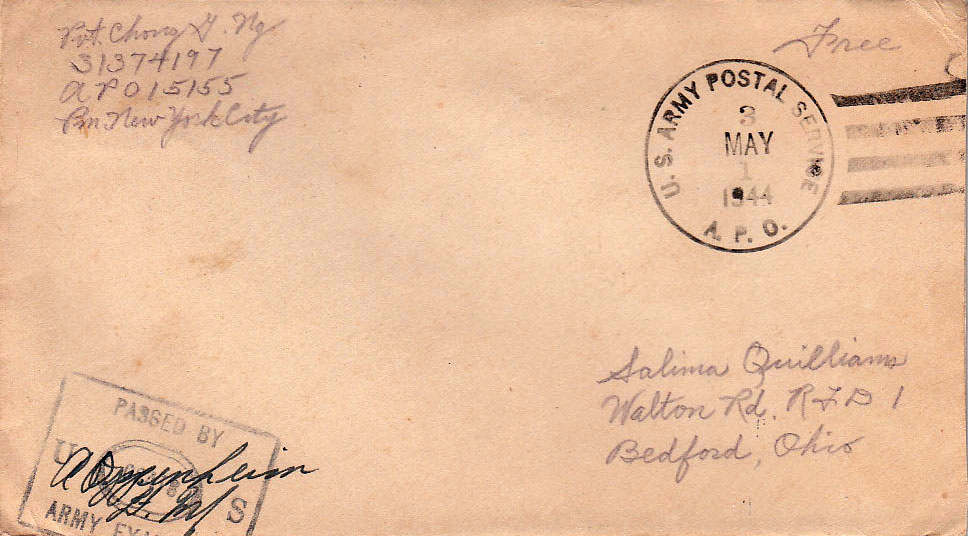 Pvt. Chong G. Ng
31374197
APO 15155
Pm New York City
Free
U. S. ARMY POSTAL SERVICE
3
MAY
1
1944
A. P. O.
Salima Quilliams
Walton Rd. RFD 1
Bedford, Ohio
PASSED BY
U S
A Oppenheim
ARMY